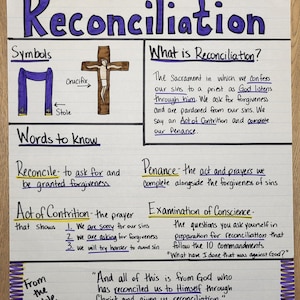 Reconciliation
Symbols
Crucifix
Stole
What is Reconciliation?
The Sacrament in which we confess
our sins to a priest as God listens
through him. We ask for forgiveness
and are pardoned from our sins. We
say an Act of Contrition and complete
our Penance.
Words to know
Reconcile- to ask for and
be granted forgiveness
Penance- the act and prayers we
complete alongside the forgiveness of sins
Act of Contrition- the prayer
that shows 1. We are sorry for our sins
2. We are asking for forgiveness
3. We will try harder to avoid sin
Examination of Conscience-
the questions you ask yourself in
preparation for reconciliation that
follow the 10 commandments
"What have I done that was against God?"
From
the
"And all of this is from God who
has reconciled us to Himself through
Christ and given us reconciliation."